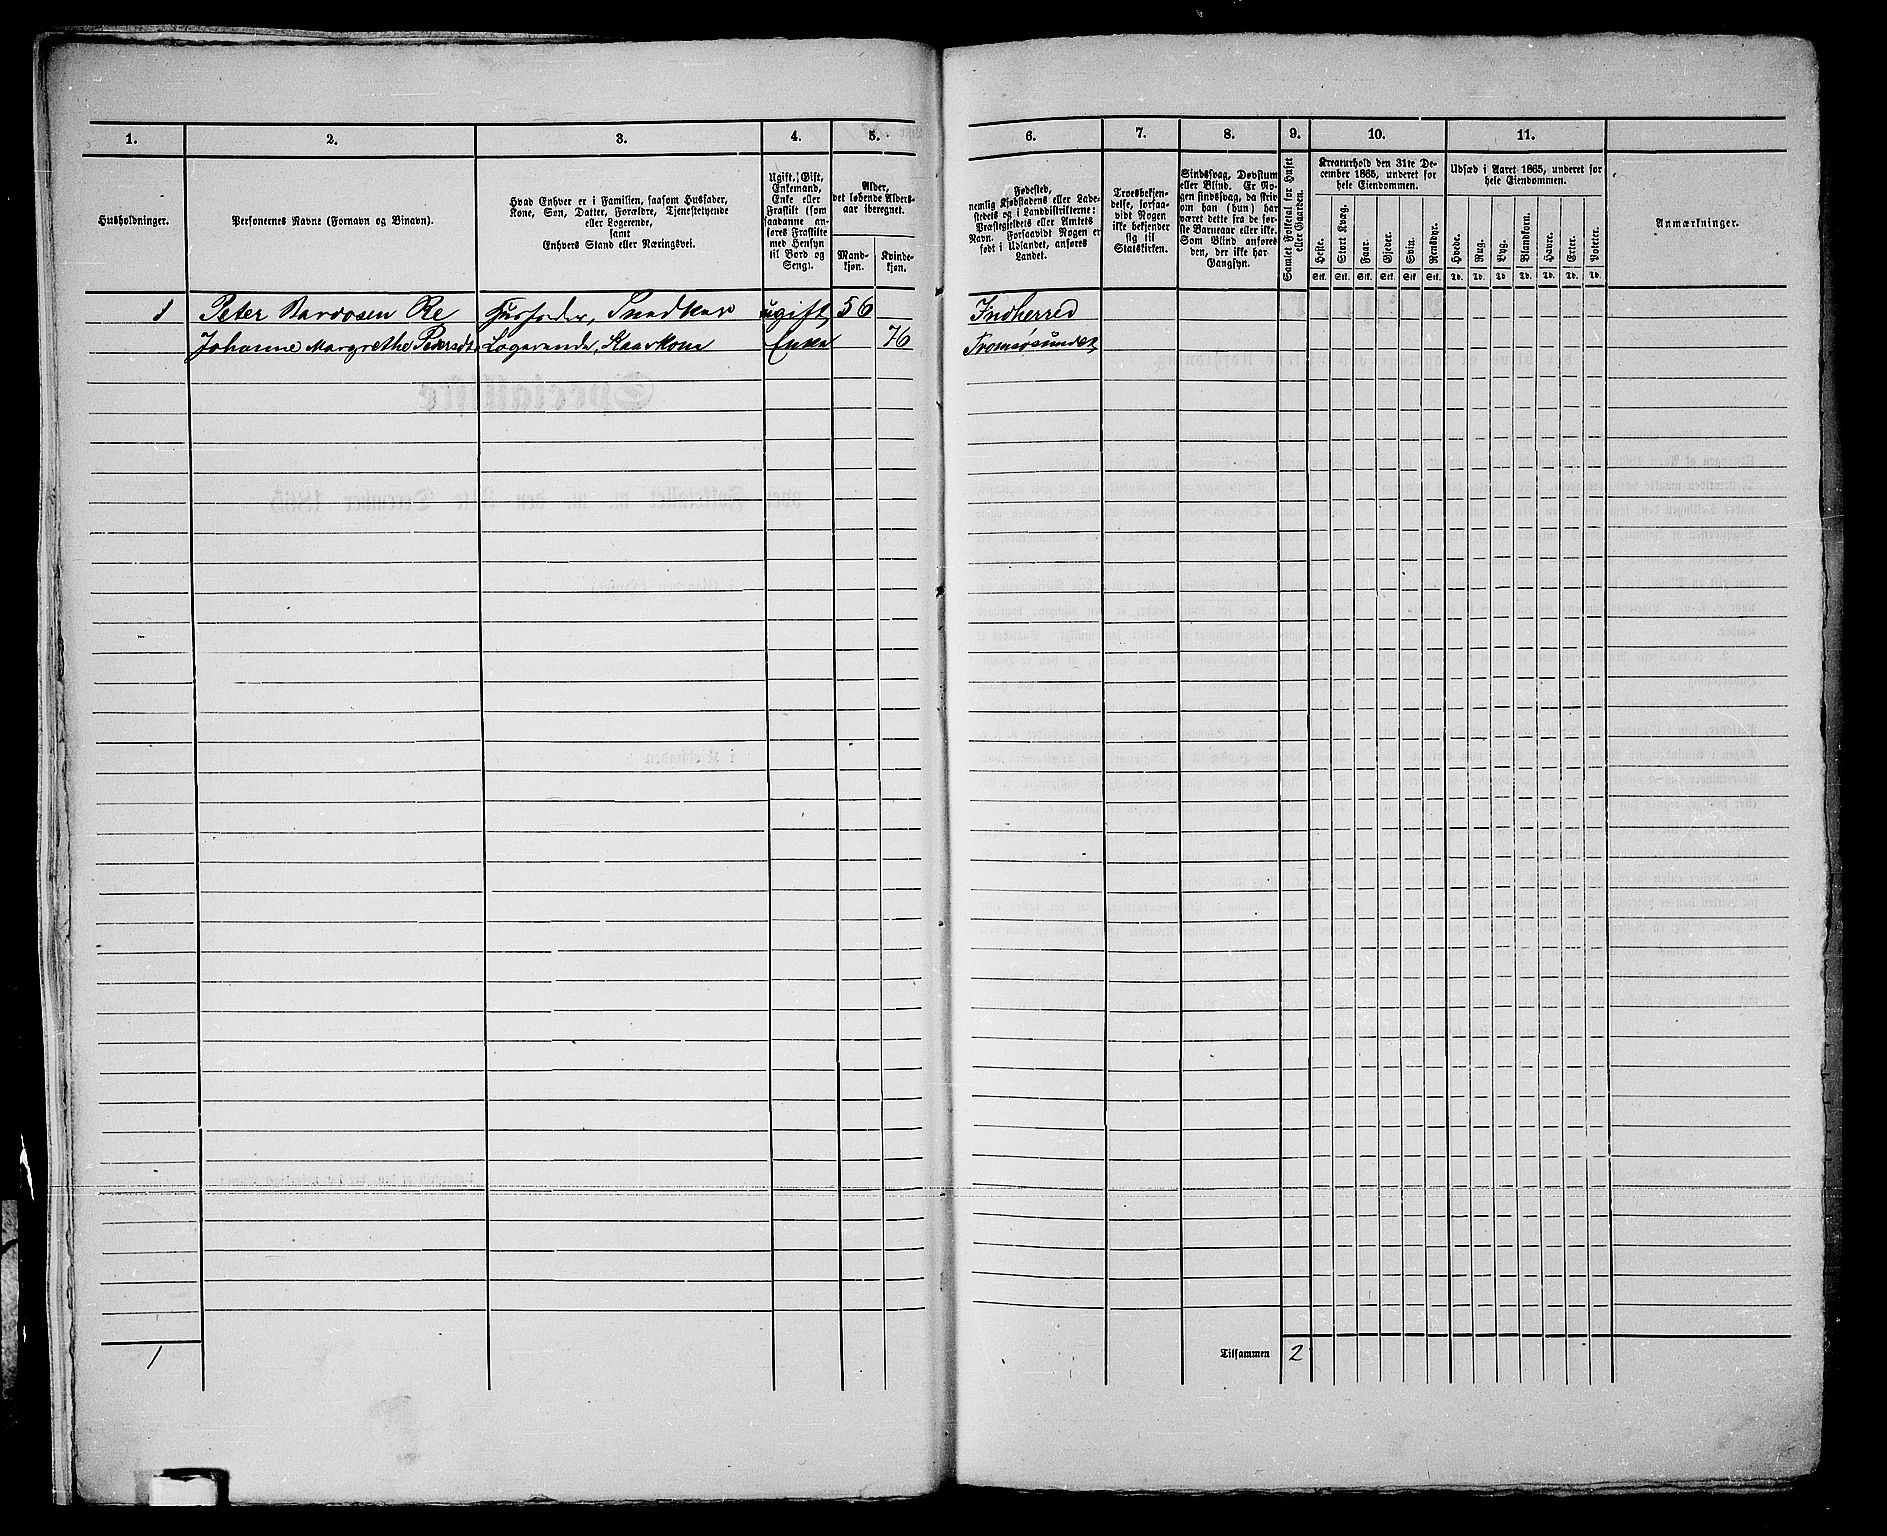 1. 2. 3. 4. 5. 6. 7. 8. 9. 10. 11.
Husholdninger.
Personernes Navne (Fornavn og Binavn).
Hvad Enhver er i Familien, saasom Husfader,
Kone, Søn, Datter, Forældre, Tjenestetyende
eller Logerende,
samt
Enhvers Stand eller Næringsvei.
Ugift, Gift,
Enkemand,
Enke eller
Fraskilt (som
saadanne an-
føres Fraskilte
med Hensyn
til Bord og
Seng).
Alder,
det løbende Alders-
aar iberegnet.
Mand-
kjøn.
Kvinde-
kjøn.
Fødested,
nemlig Kjøbstadens eller Lade-
stedets og i Landdistrikterne:
Præstegjeldets eller Amtets
Navn. Forsaavidt Nogen er
født i Udlandet, anføres
Landet.
Troesbekjen-
delse, forsaa-
vidt Nogen
ikke bekjender
sig til
Statskirken.
Sindssvag, Døvstum
eller Blind. Er No-
gen sindssvag, da skrives
om han (hun) har
været dette fra de før-
ste Barneaar eller ikke.
Som Blind anføres
den, der ikke har
Gangsyn.
Samlet Folketal for Huset
eller Gaarden.
Kreaturhold den 31te De-
cember 1865, underet for
hele Eiendommen.
Heste. Stort Kvæg. Faar. Gjeder. Svin. Rensdyr.
Stk. Stk. Stk. Stk. Stk. Stk.
Udsæd i Aaret 1865, underet for
hele Eiendommen.
Hvede. Rug. Byg. Blandkorn. Havre. Erter. Poteter.
Td. Td. Td. Td. Td. Td. Td.
Anmærkninger.
1 Peter Bardosen Re Husfader, Snedker ugift 56 Indherred
Johanne Margrethe Pedersdt. Logerende, Kaarkone Enke 76 Tromsøsundet
1 Tilsammen 2